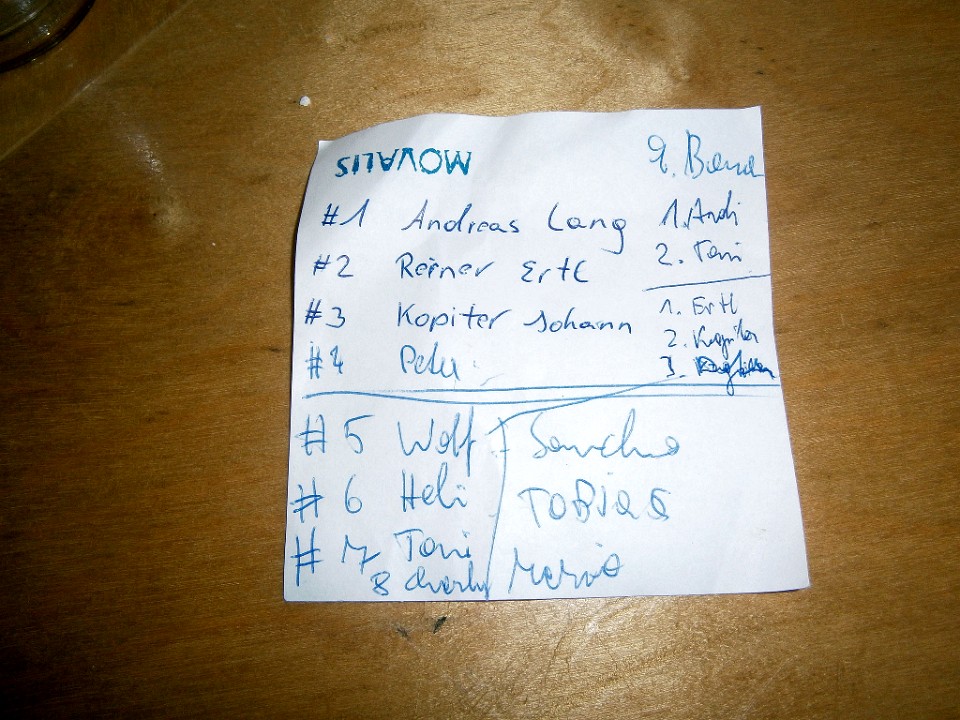 MOVALIS
#1 Andreas Lang
#2 Reiner Ertl
#3 Kopiter Johann
#4 Peter
9.
1. Andi
2. Toni
1. Ertl
2. Kopiter
3.
#5 Wolf
#6 Heli
#7 Toni
8 Charly
Sancho
TOBIAS
Mario